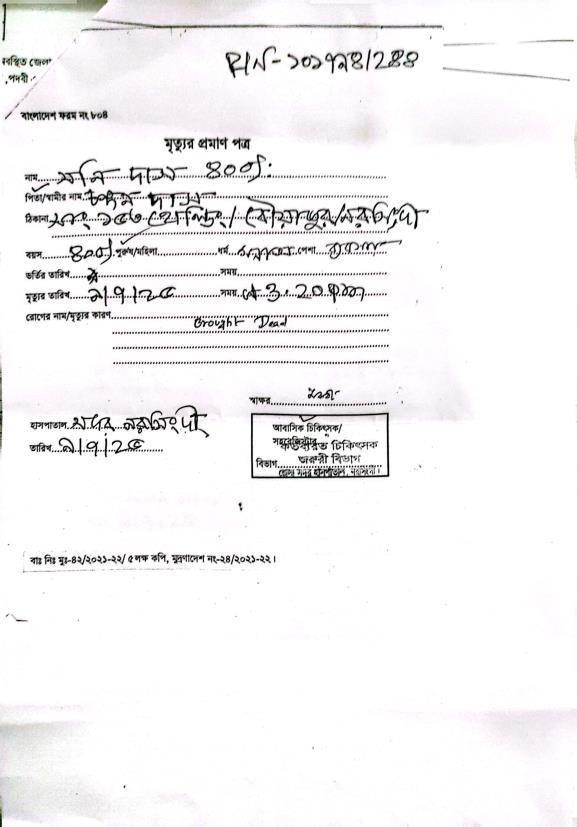 বস্থিত জেলা
পদবী
P/N-১০১৭৪/২৪৪
বাংলাদেশ ফরম নং ৮০৪
মৃত্যুর প্রমাণ পত্র
নাম... মনি দাস ৪০ ...
পিতা/স্বামীর নাম... দাস
ঠিকানা... ১৫৩ হোল্ডিং / বৌয়াকুর/নরসিংদী
বয়স... ৪০ ... পুরুষ/মহিলা... ধর্ম... সনাতন... পেশা...
ভর্তির তারিখ... সময়...
মৃত্যুর তারিখ... ৯/৭/২৫ ... সময়...
রোগের নাম/মৃত্যুর কারণ... Brought Dead
স্বাক্ষর...
হাসপাতাল... সদর নরসিংদী
তারিখ... ৯/৭/২৫
আবাসিক চিকিৎসক/
সহরেজিস্ট্রার
কর্তব্যরত চিকিৎসক
জরুরী বিভাগ
বিভাগ...
জেলা সদর হাসপাতাল, নরসিংদী।
বাঃ নিঃ মুঃ-৪২/২০২১-২২/ ৫ লক্ষ কপি, মুদ্রণাদেশ নং-২৪/২০২১-২২।